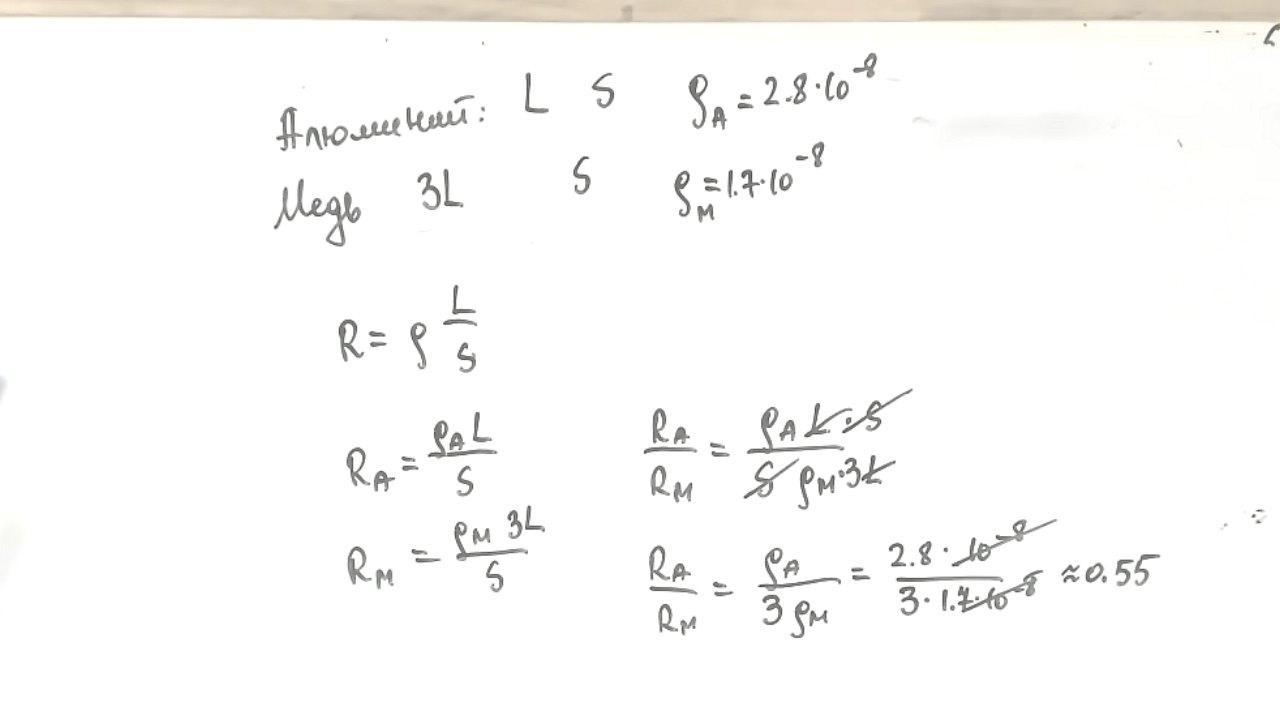 Алюминий: L S ρ_A = 2.8·10^-8
Медь 3L S ρ_M = 1.7·10^-8
R = ρ L/S
R_A = ρ_A L / S
R_M = ρ_M 3L / S
R_A / R_M = ρ_A L·S / S ρ_M·3L
R_A / R_M = ρ_A / 3ρ_M = 2.8·10^-8 / 3·1.7·10^-8 ≈ 0.55